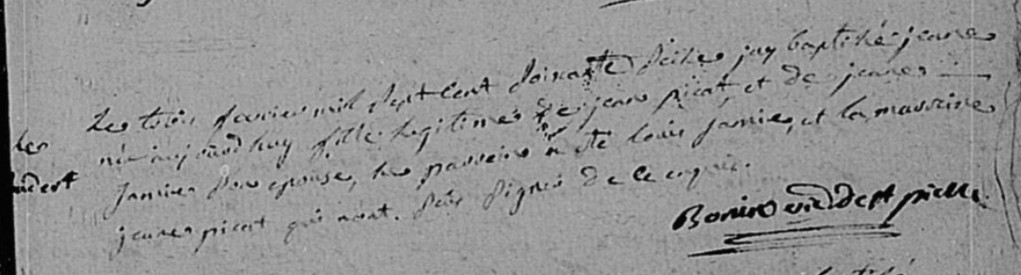 Le trois fevrier mil sept cent soixante seize jay baptisé jeanne
née aujourdhuy fille legitime de jean picat et de jeanne
janvier son epouse, le parrein a été louis janvier, et la marreine
jeanne picat qui n'ont sceu signer de ce enquis.
Bonin vic de st pierre